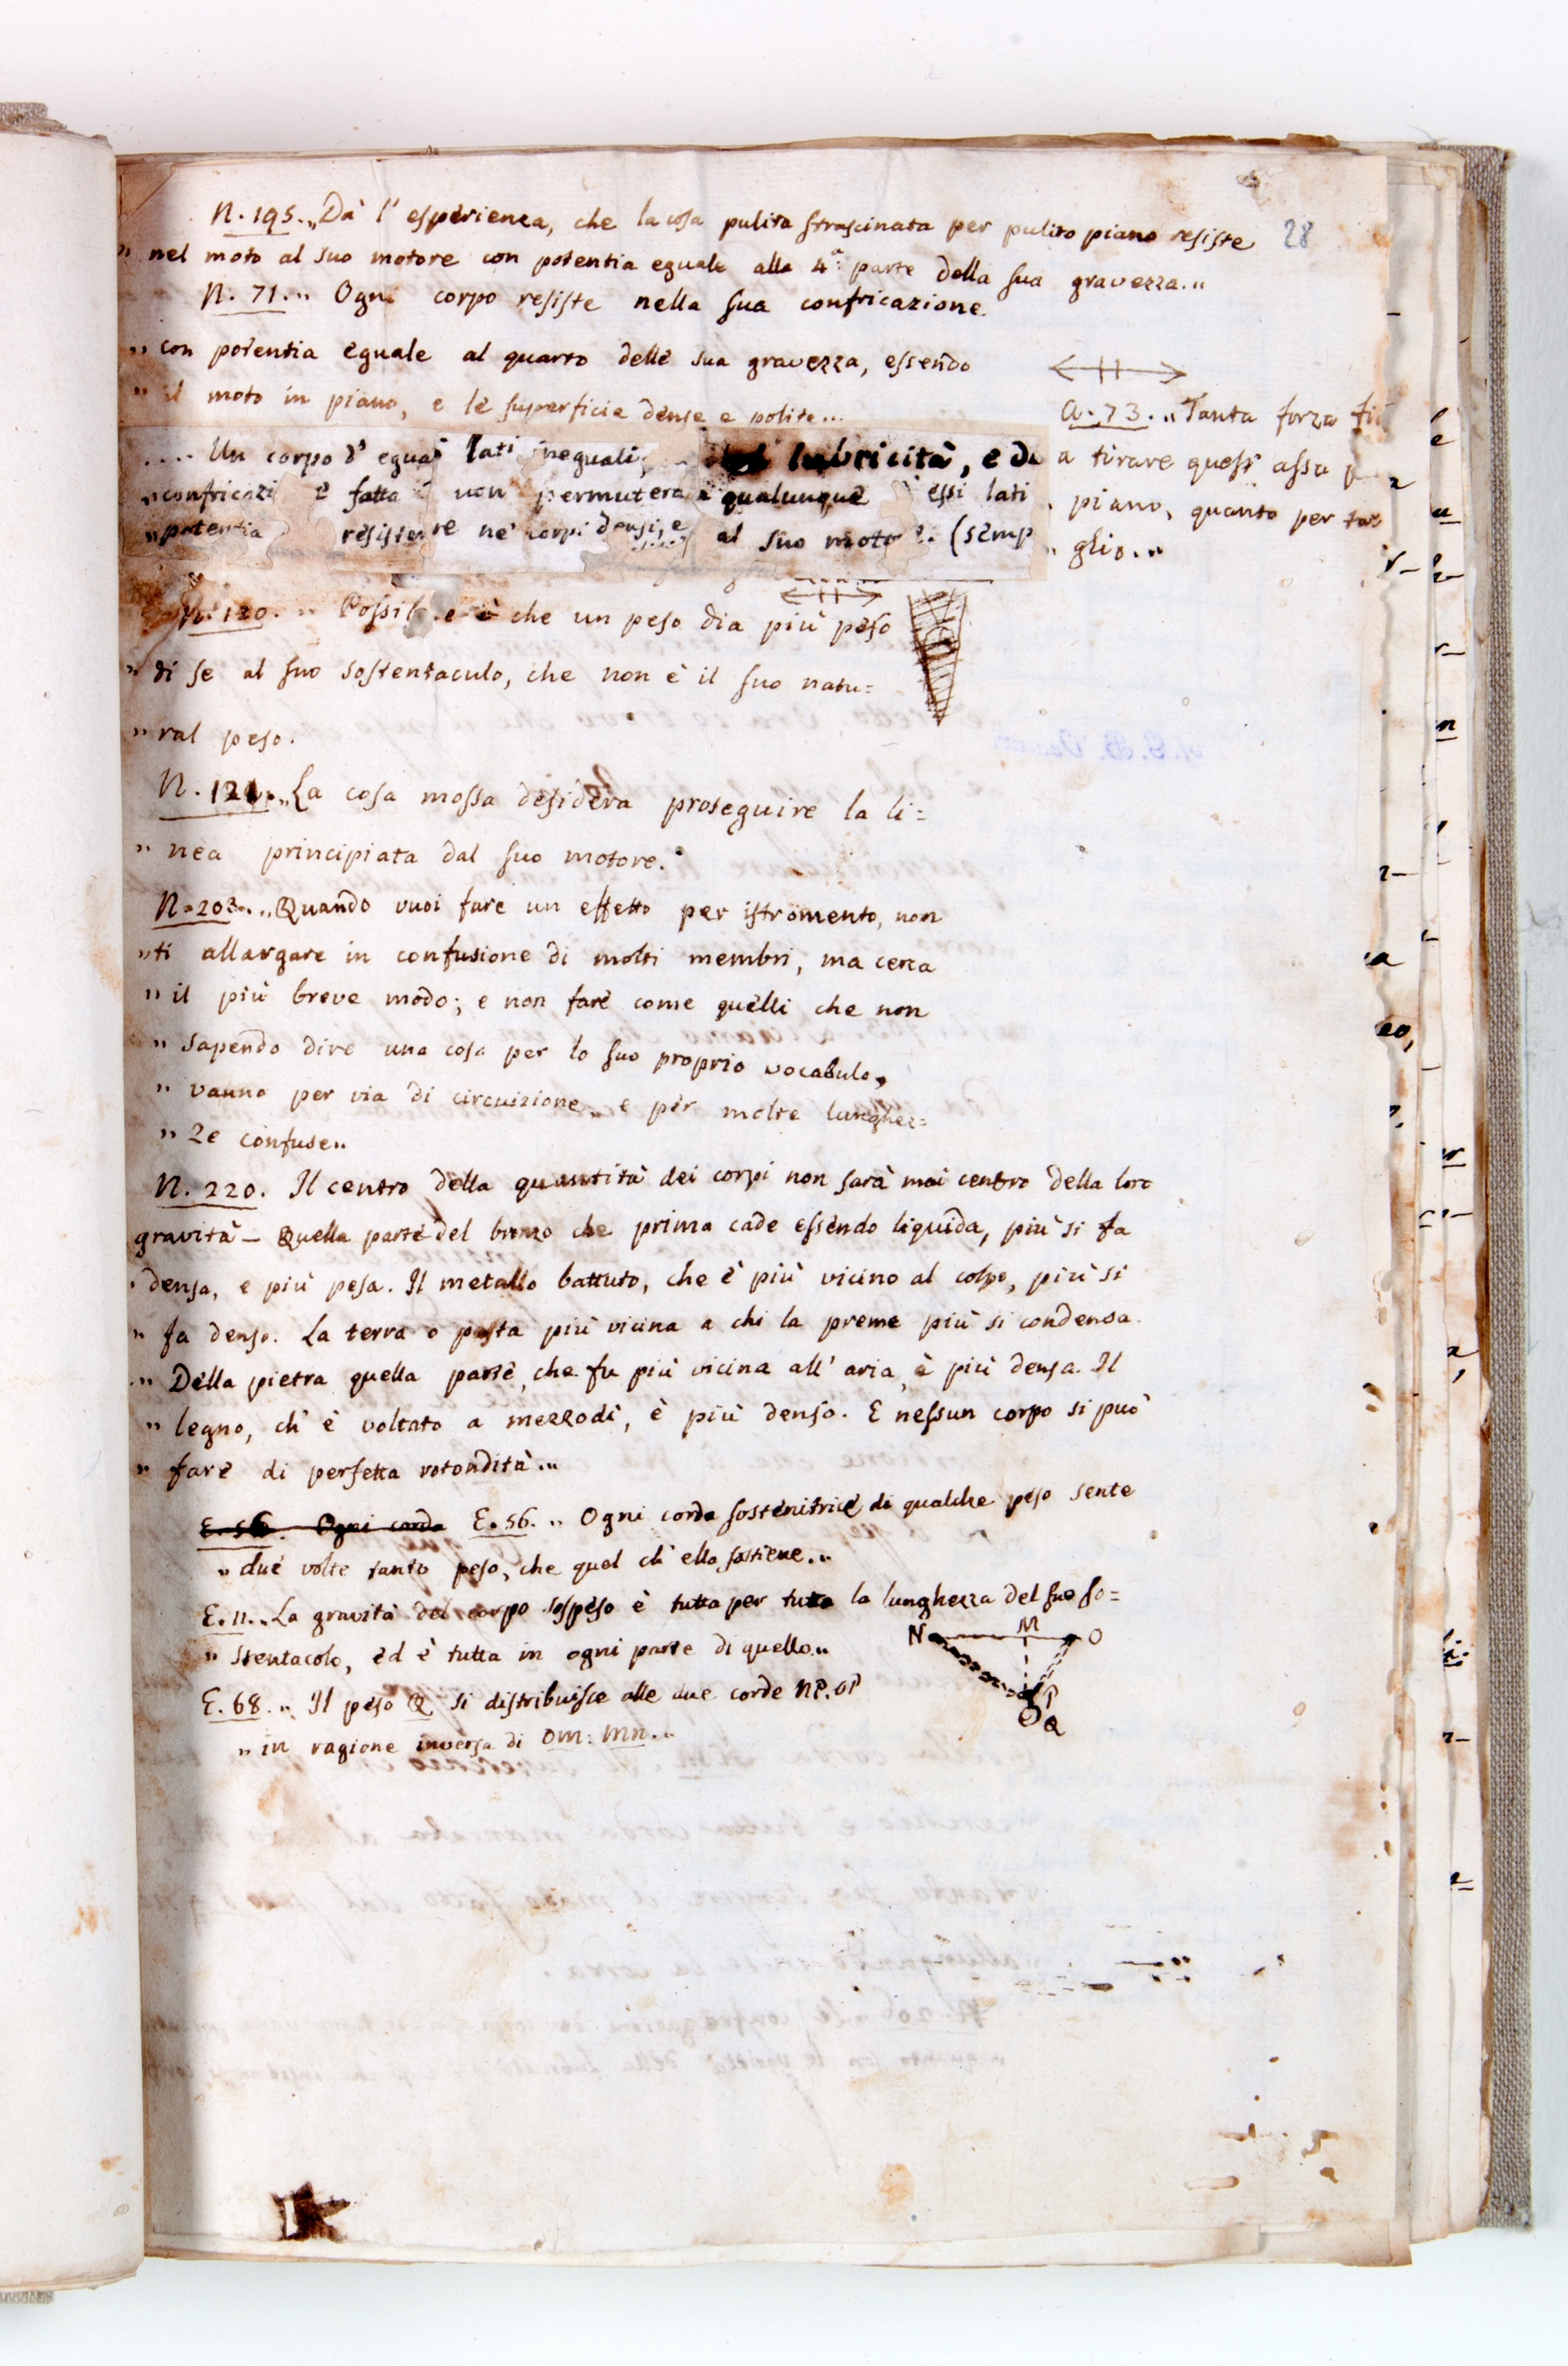 28
N. 195. „ Dà l'esperienza, che la cosa pulita strascinata per pulito piano resiste
„ nel moto al suo motore con potentia eguale alla 4.ª parte della sua gravezza. „
N. 71. „ Ogni corpo resiste nella sua confricazione
„ con potentia eguale al quarto delle sua gravezza, essendo
„ il moto in piano, e le superficie dense e polite...
.... Un corpo d' eguai lati ineguali, lubricità, e di
„ confricazi è fatta non permutera qualunque essi lati
„ potentia resistere ne' corpi densi, e al suo motore. (semp
A. 73. „ Tanta forza
a tirare quest' assa
piano, quanto per
„ glio. „
N. 120. „ Possibile è che un peso dia più peso
„ di se al suo sostentaculo, che non è il suo natu=
„ ral peso.
N. 121. „ La cosa mossa desidera proseguire la li=
„ nea principiata dal suo motore. „
N. 203. „ Quando vuoi fare un effetto per istromento, non
„ ti allargare in confusione di molti membri, ma cerca
„ il più breve modo; e non fare come quelli che non
„ sapendo dire una cosa per lo suo proprio vocabulo,
„ vanno per via di circuizione, e per molte lunghez=
„ ze confuse „
N. 220. Il centro della quantità dei corpi non sarà mai centro della loro
gravità — Quella parte del bronzo che prima cade essendo liquida, più si fa
„ densa, e più pesa. Il metallo battuto, che è più vicino al colpo, più si
„ fa denso. La terra o pasta più vicina a chi la preme più si condensa.
„ Della pietra quella parte, che fu più vicina all' aria, è più densa. Il
„ legno, ch' è voltato a mezzodì, è più denso. E nessun corpo si può
„ fare di perfetta rotondità. „
E. 56. Ogni corda E. 56. „ Ogni corda sostenitrice di qualche peso sente
„ due volte tanto peso, che quel ch' ella sostiene. „
E. 11. „ La gravità del corpo sospeso è tutta per tutta la lunghezza del suo so=
„ stentacolo, ed è tutta in ogni parte di quello „
E. 68. „ Il peso Q si distribuisce alle due corde NP. OP
„ in ragione inversa di OM: MN. „
N M O
P
Q